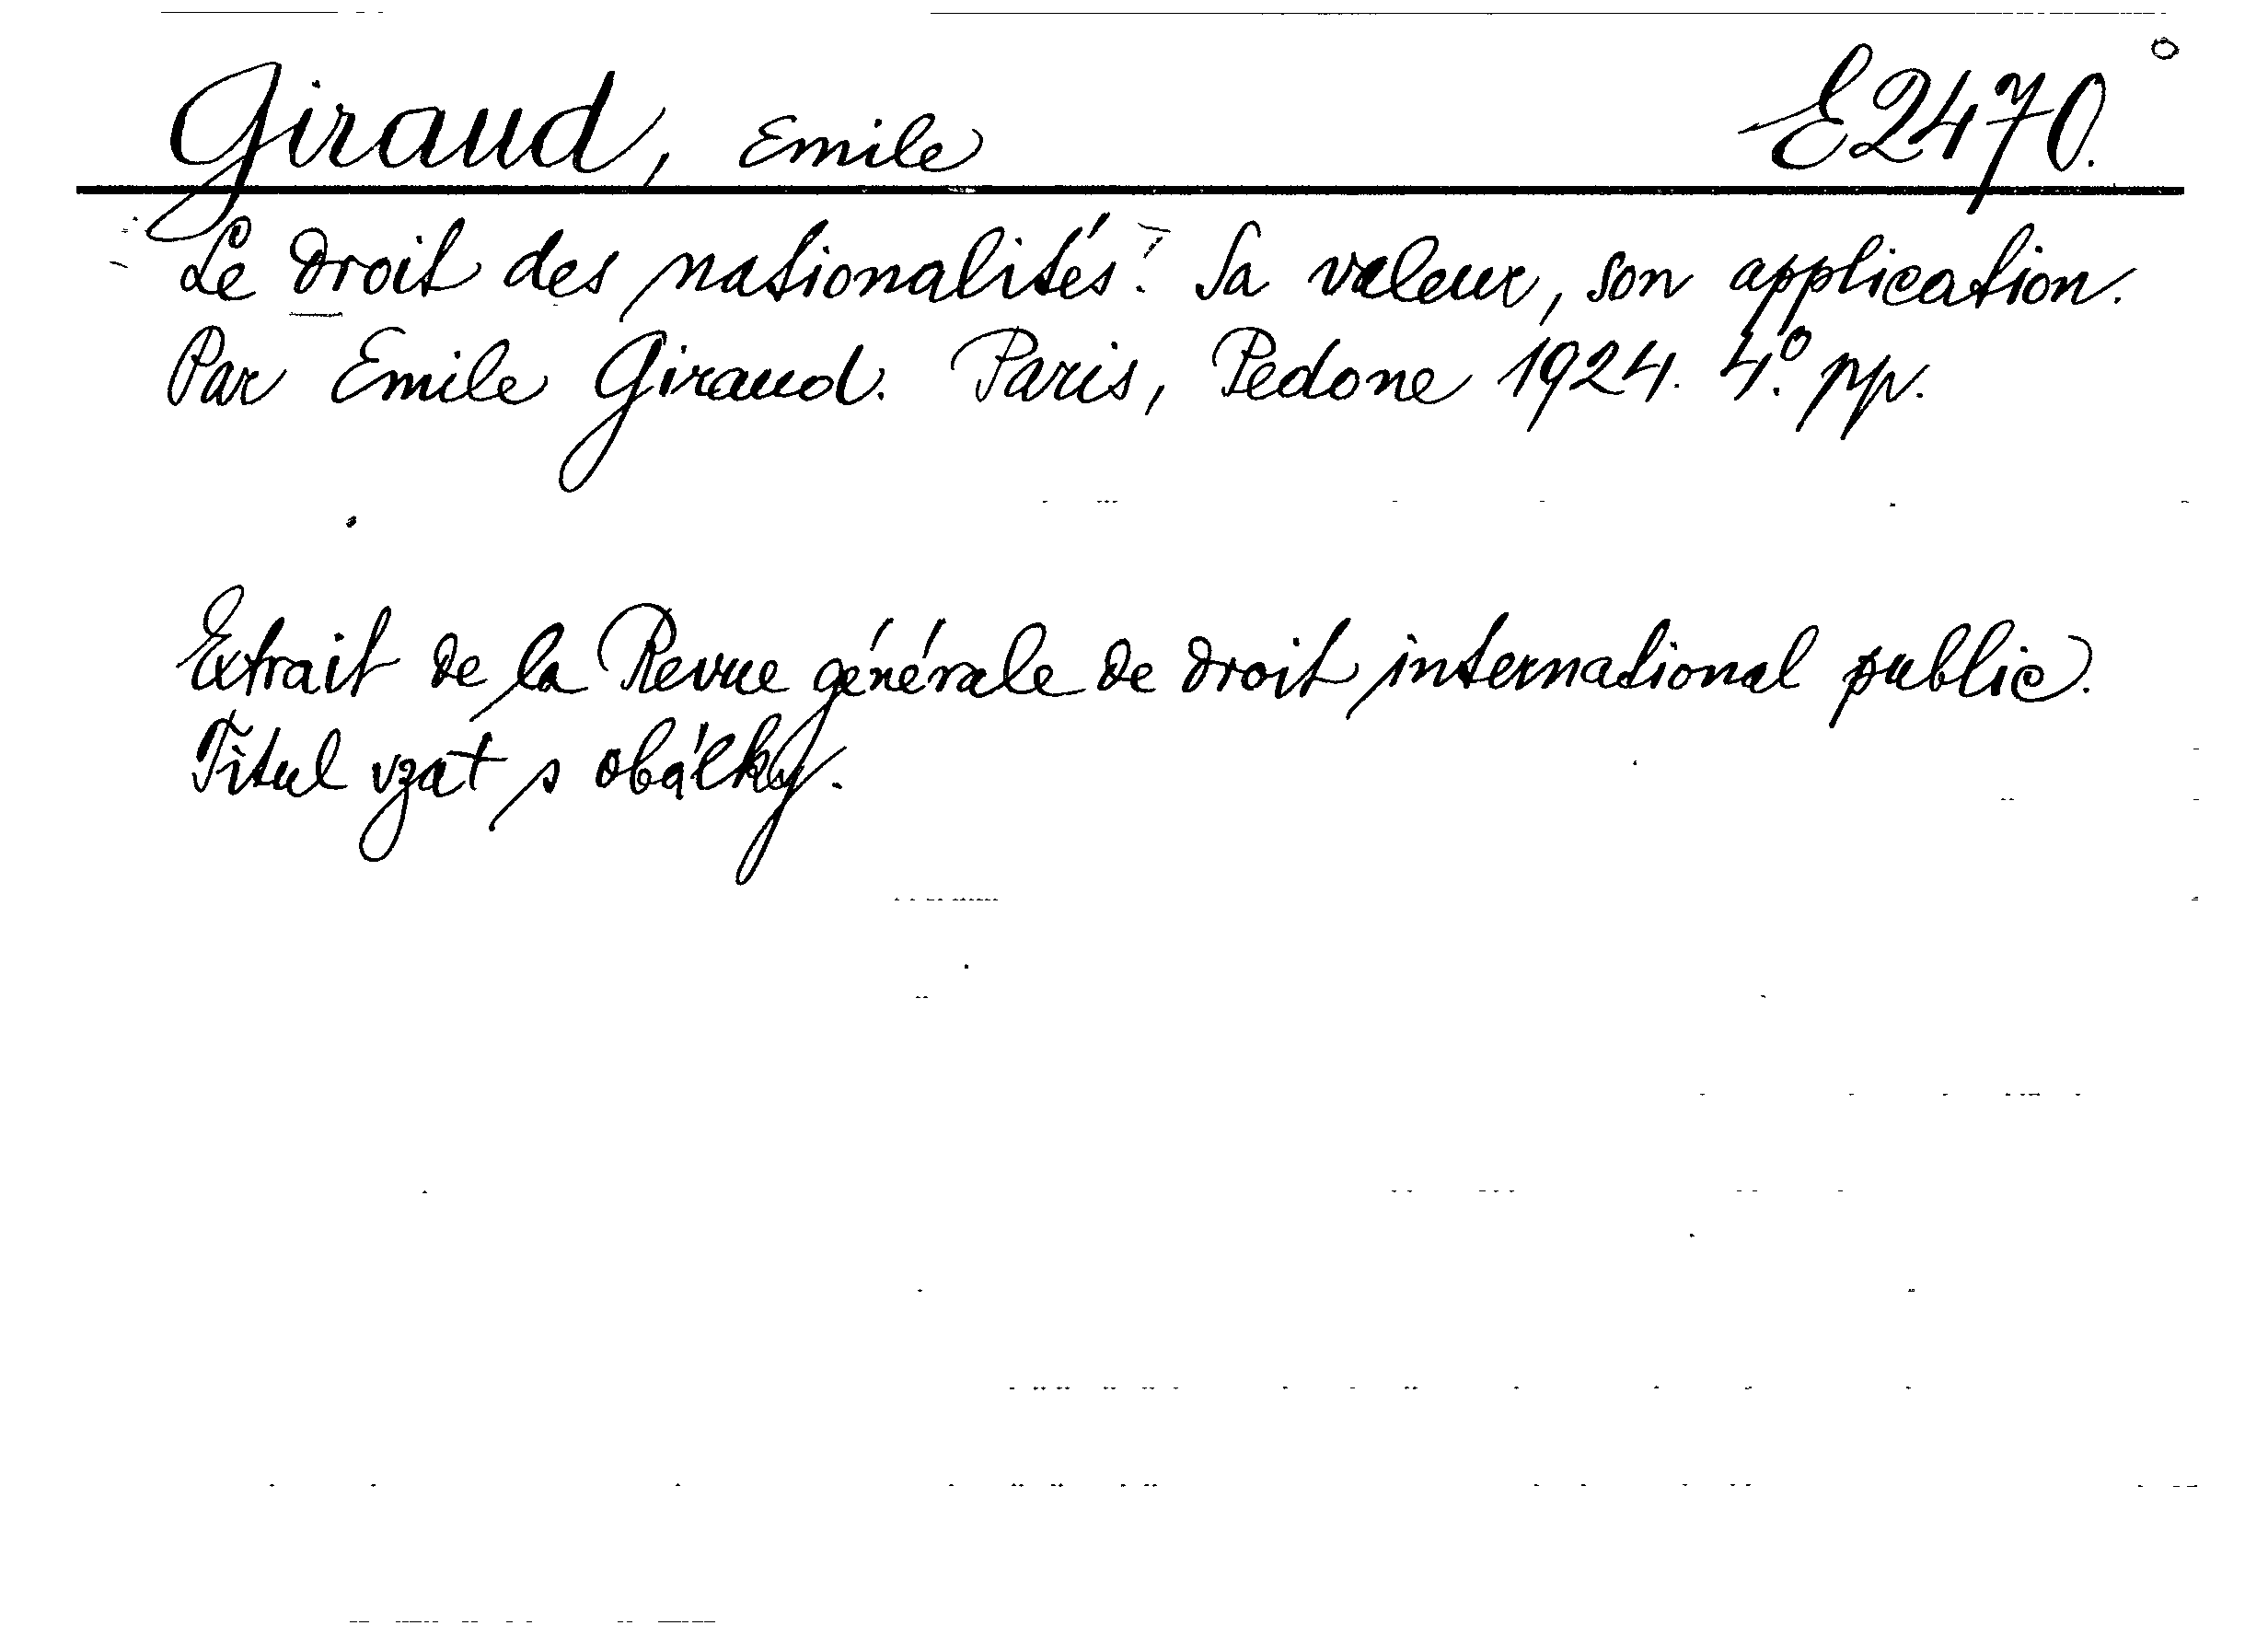 Giraud, Emile E2470.
Le droit des nationalités. Sa valeur, son application.
Par Emile Giraud. Paris, Pedone 1924. 4.º pp.
Extrait de la Revue générale de droit international public.
Titul vzat s obálky.